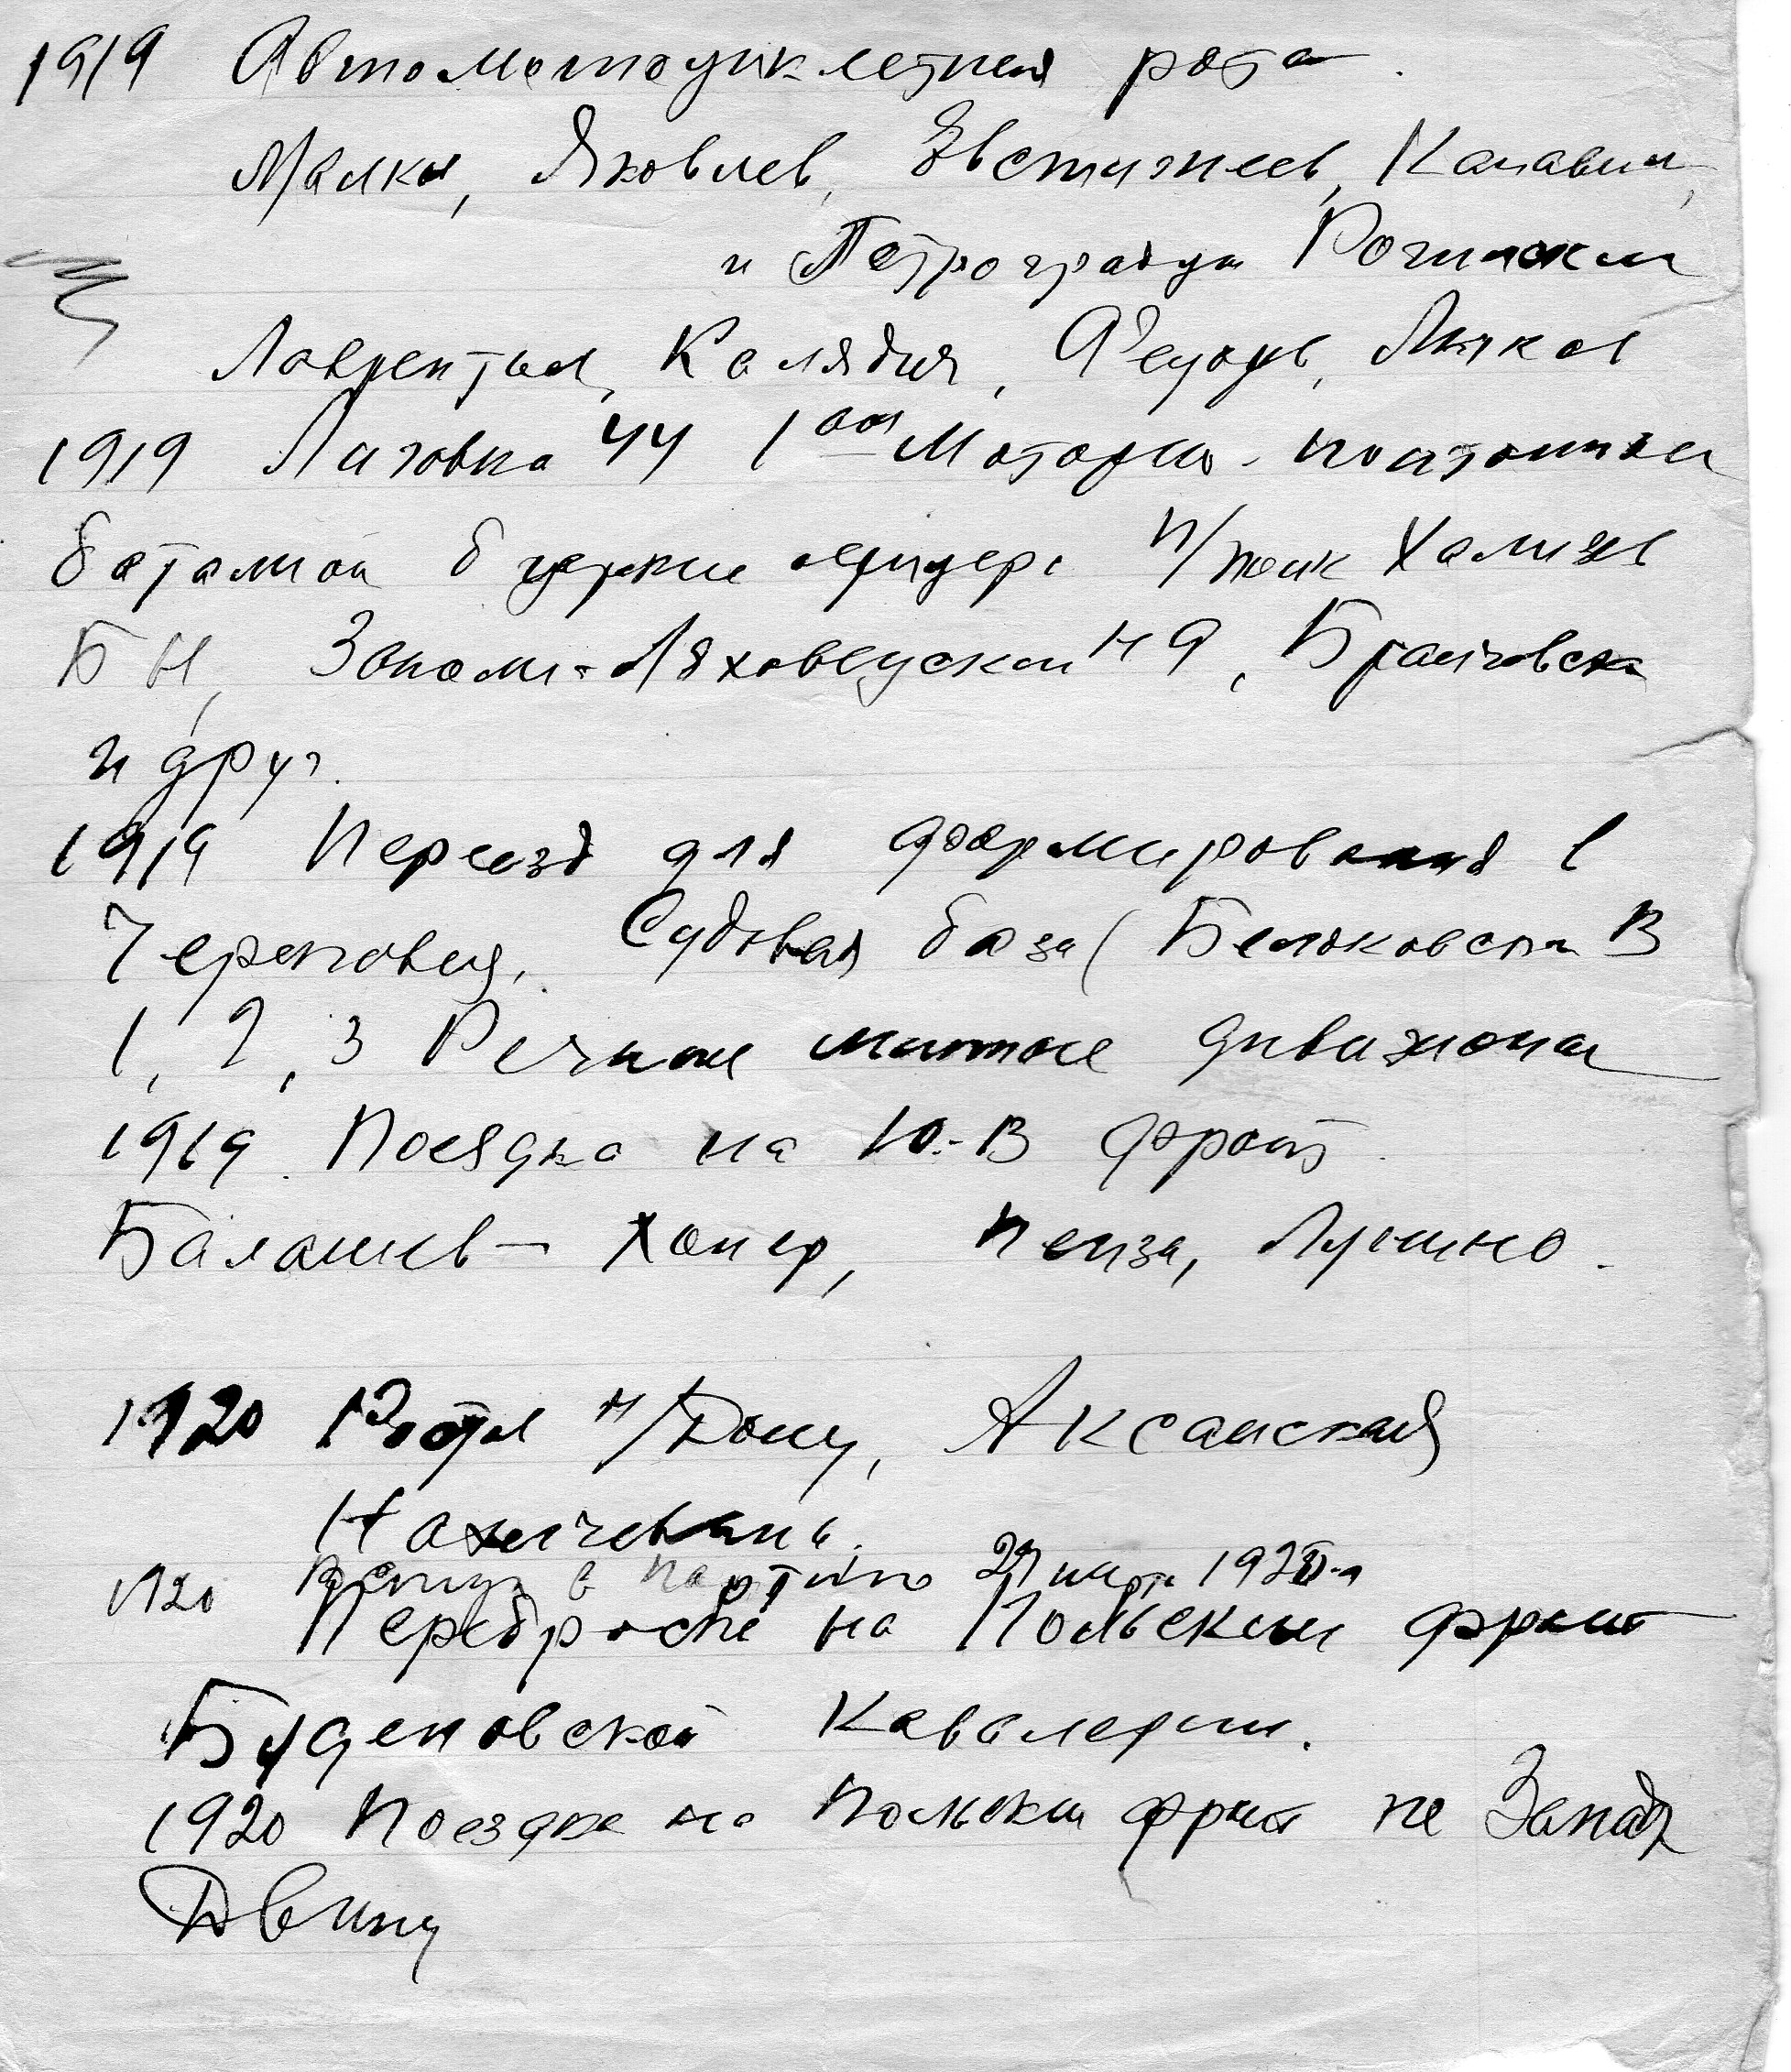 1919 Автомотоциклетная рота.
Малки, Яковлев, Евстигнеев, Калавин,
и Петроградцы Рогинский
Лаврентьев, Калядин, Федоров, Лычков
1919 Лиговка 44 1ый Моторно-понтонный
батальон б. царские офицеры п/полк Хализев
БН, Заполь-Ляховецкий НА, Брайловск
и друг.
1919 Переезд для формирования в
Череповец. Судовая база (Беляковский В
1, 2, 3 Речные минные дивизионы
1919. Поездка на Ю.-В фронт.
Балашов – Хопер, Пенза, Лунино.
1920 Ростов н/Дону, Аксайская
Нахичевань.
Вступ. в партию 1920 г
1920 Переброска на Польский фронт
Буденовской Кавалерии.
1920 Поездка на Польский фронт на Запад
Двину